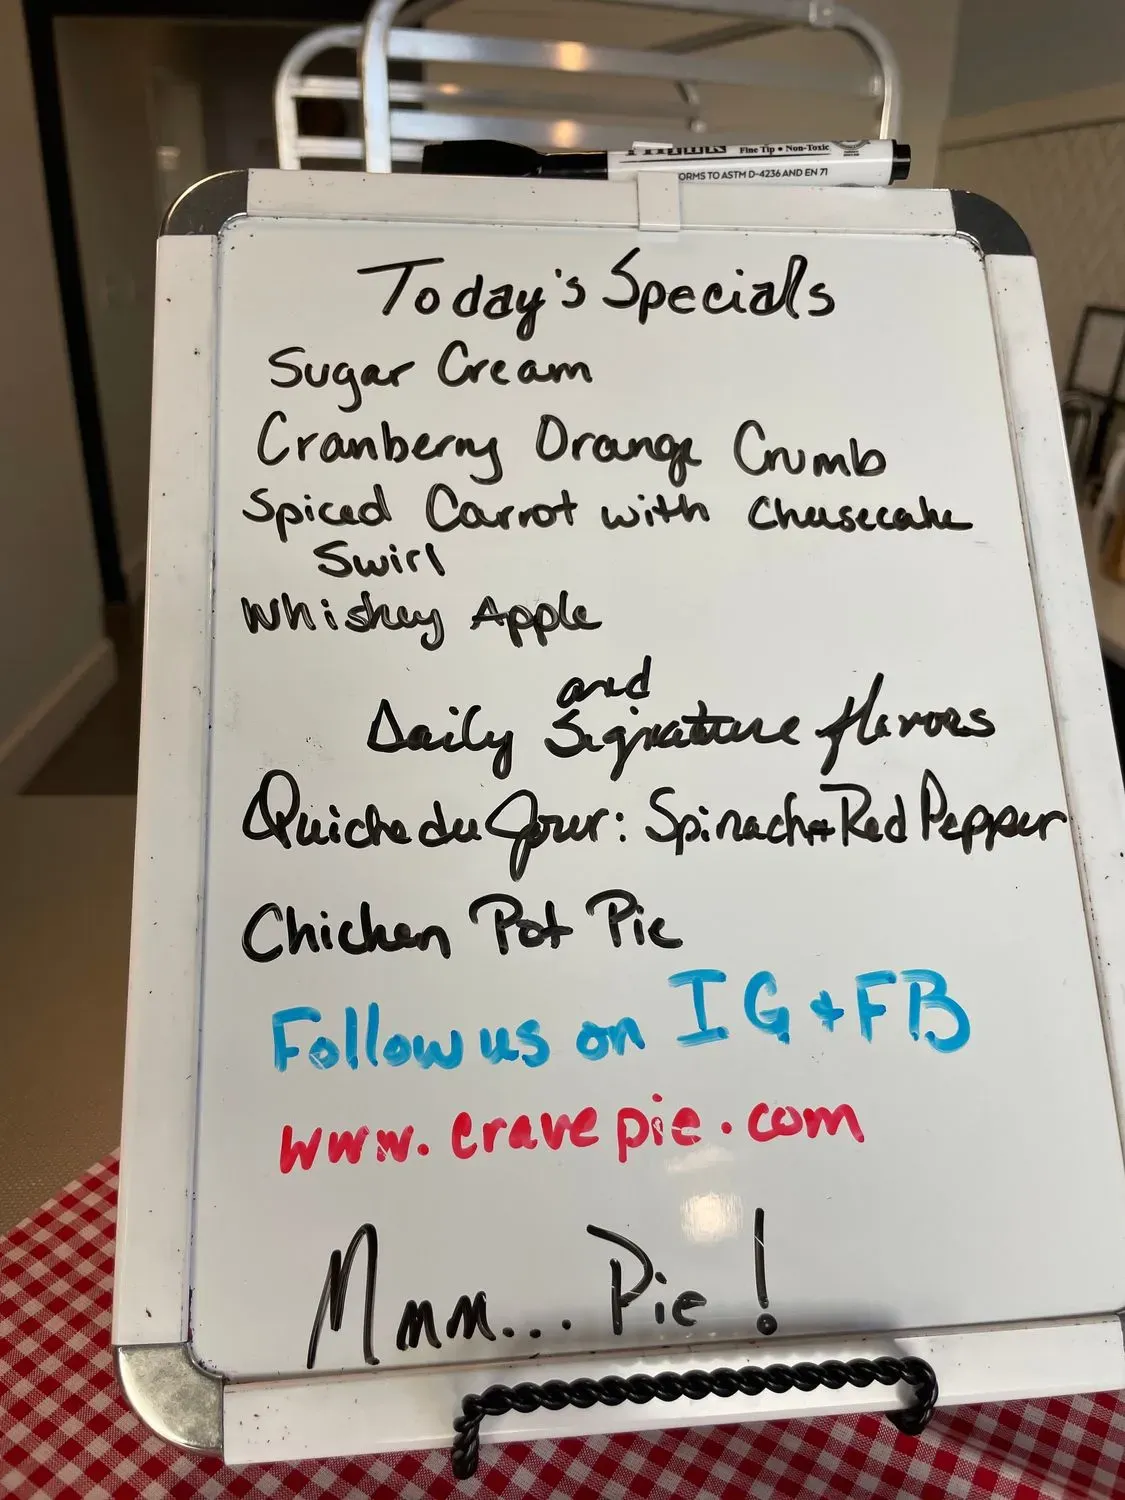 Fine Tip • Non-Toxic
ORMS TO ASTM D-4236 AND EN 71
Today's Specials
Sugar Cream
Cranberry Orange Crumb
Spiced Carrot with Cheesecake
Swirl
Whiskey Apple
and
Daily Signature flavors
Quiche du Jour: Spinach + Red Pepper
Chicken Pot Pie
Follow us on IG + FB
www.cravepie.com
Mmm... Pie!